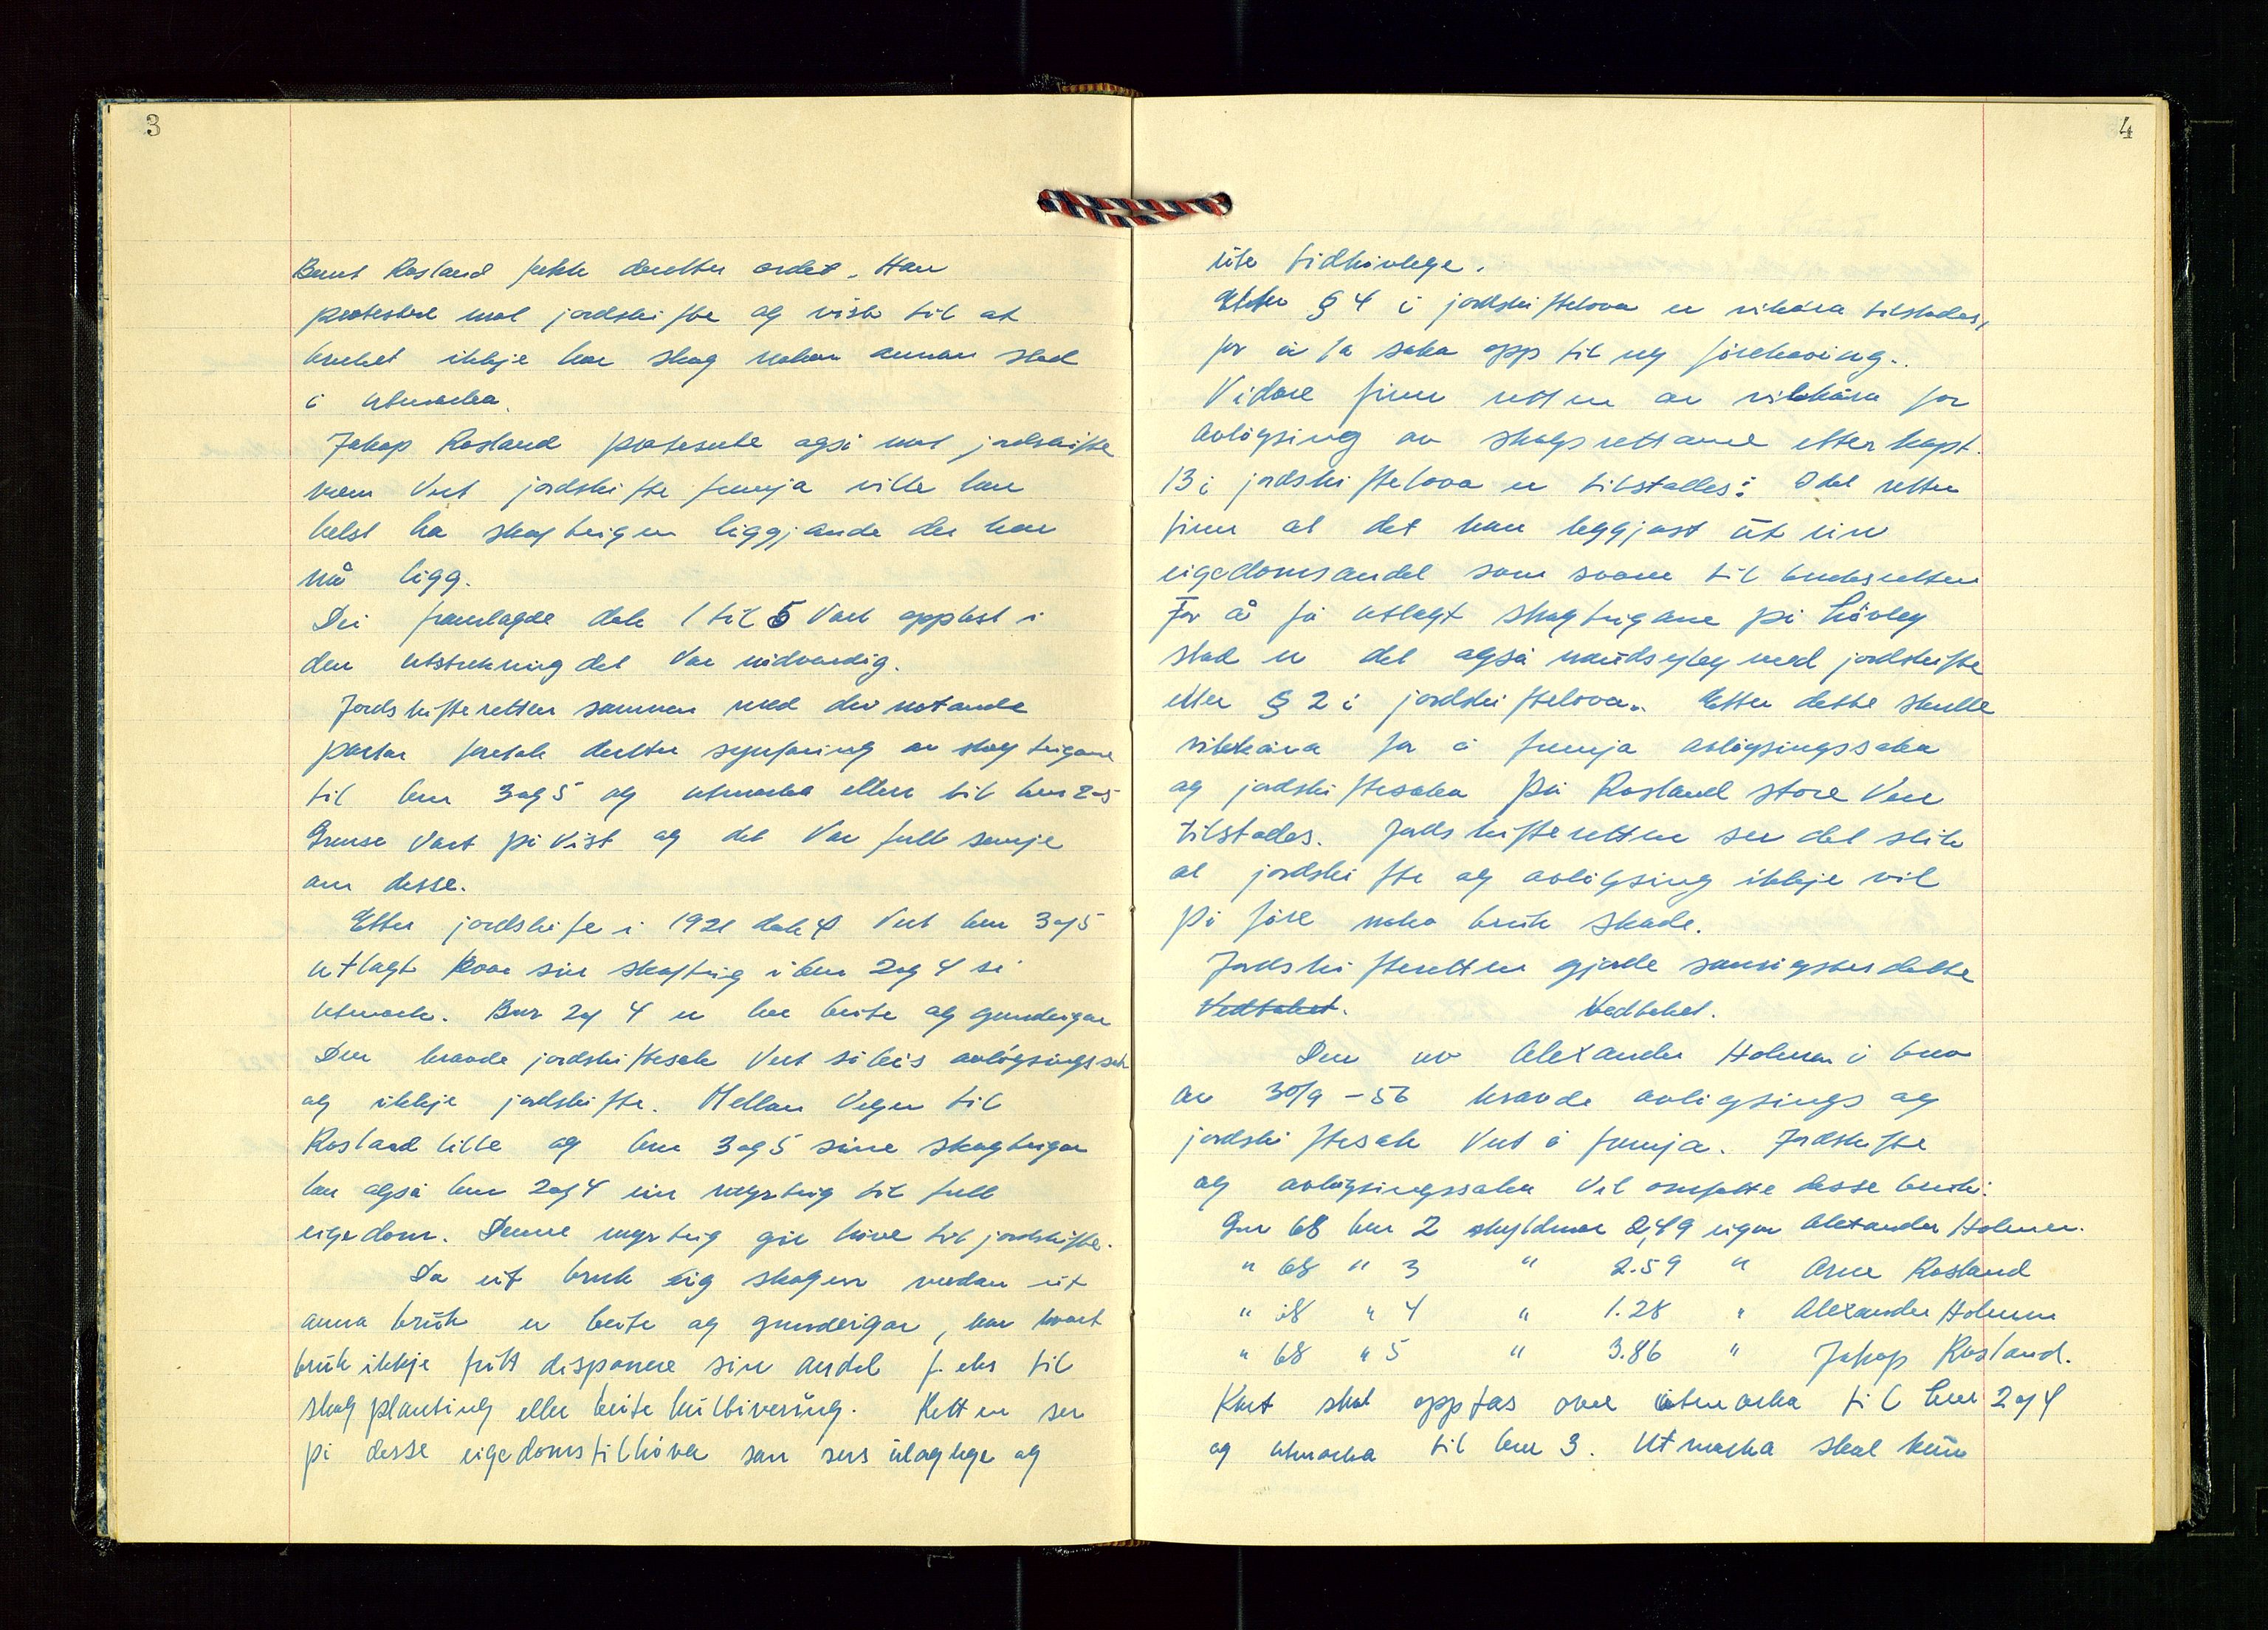 3
Bernt Rosland fekk deretter ordet. Han
protesterte mot jordskifte og viste til at
bruket ikkje har skog nokon annan stad
i utmarka.
Jakop Rosland protesterte også mot jordskifte
men vert jordskifte fremja ville han
helst ha skogteigen liggjande der han
nå ligg.
Dei framlagde dok 1 til 5 vart opplest i
den utstrekning det var nødvendig.
Jordskifteretten sammen med dei møtande
partar foretok deretter synfaring av skogteigane
til bnr 3 og 5 og utmarka ellers til bnr 2-5
Grense vart påvist og det var full semje
om desse.
Etter jordskifte i 1921 dok 4 vert bnr 3 og 5
utlagt kvar sin skogteig i bnr 2 og 4 si
utmark. Bnr 2 og 4 er her beite og grunneigar
Den kravde jordskiftesak vert såleis avløysingssak
og ikkje jordskifte. Mellom vegen til
Rosland lille og bnr 3 og 5 sine skogteigar
har også bnr 2 og 4 ein myrteig til full
eigedom. Denne myrteig går høve til jordskifte.
Da eit bruk eig skogen medan eit
anna bruk er beite og grunneigar, kan kvart
bruk ikkje fritt disponere sin andel f. eks til
skogplanting eller beitekultivering. Retten ser
på desse eigedomstilhøva som sers ulaglege og
4
utidhøvlege.
Etter § 4 i jordskiftelova er vilkåra tilstades,
for å ta saka opp til ny førehaving.
Vidare finn retten at vilkåra for
avløysing av skogsrettane etter kapt.
13 i jordskiftelova er tilstades: I det retten
finn at det kan leggjast ut ein
eigedomsandel som svarer til bruksretten
For å få utlagt skogteigane på høveleg
stad er det også naudsynleg med jordskifte
etter § 2 i jordskiftelova. Etter dette skulle
vilkåra for å fremja avløysingssaka
og jordskiftesaka på Rosland store vere
tilstades. Jordskifteretten ser det slik
at jordskifte og avløysing ikkje vil
påføre noko bruk skade.
Jordskifteretten gjorde samrøystes dette
Vedtaket. Vedtaket.
Den av Alexander Holmen i brev
av 30/9 - 56 kravde avløysings og
jordskiftesak vert å fremja. Jordskifte
og avløysingssaka vil omfatte desse bruk:
Gnr 68 bnr 2 skyldmar 2,49 eigar Alexander Holmen.
" 68 " 3 " 2.59 " Arne Rosland
" 68 " 4 " 1.28 " Alexander Holmen
" 68 " 5 " 3.86 " Jakop Rosland.
Kart skal opptas over utmarka til bnr 2 og 4
og utmarka til bnr 3. Utmarka skal kun